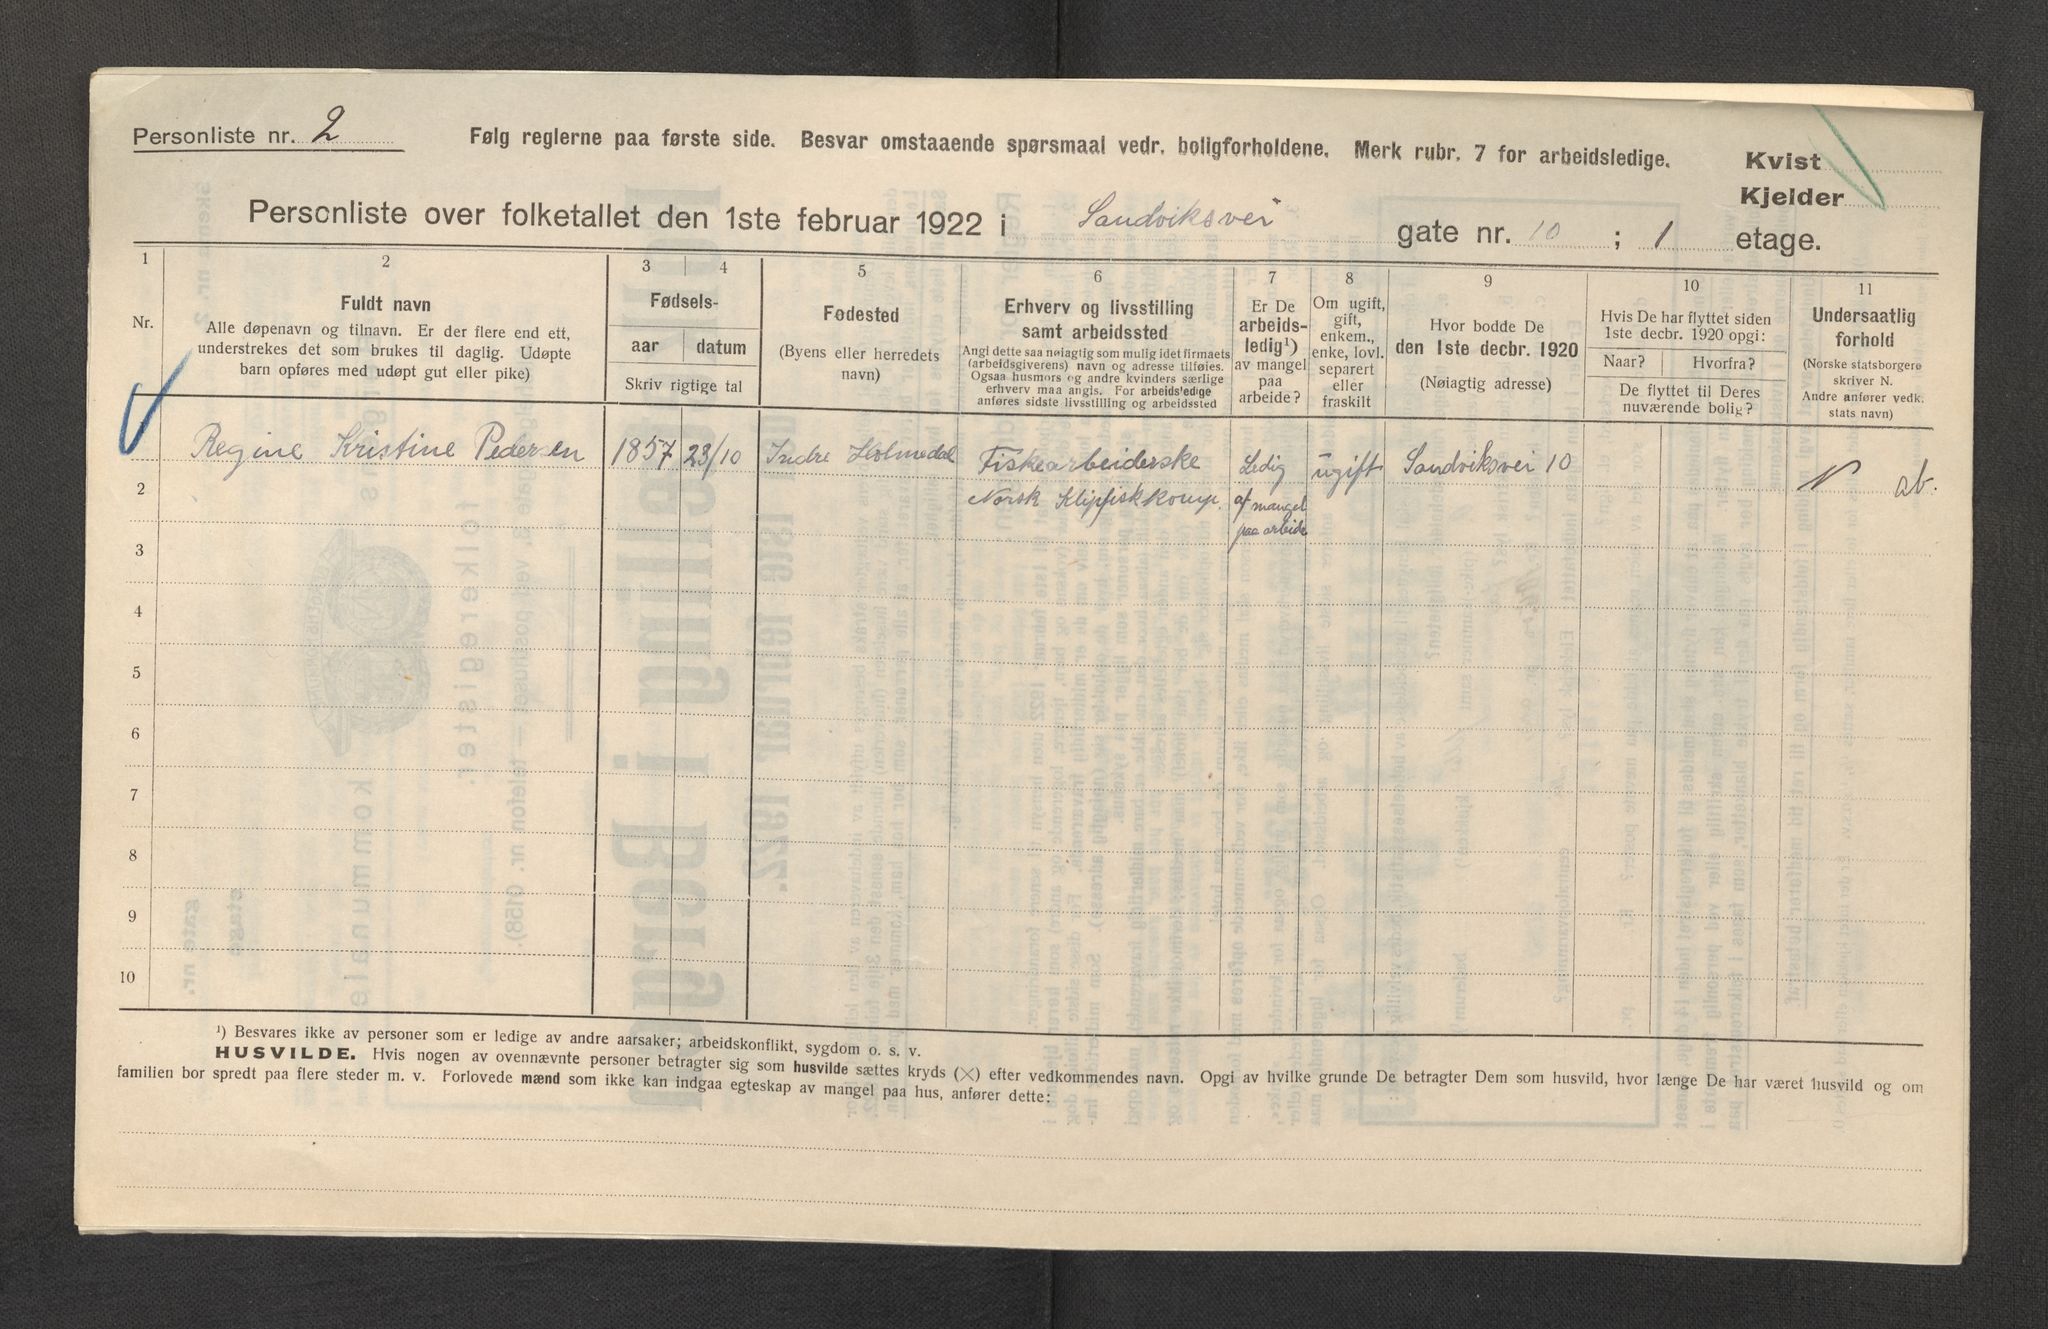 Personliste nr. 2
Følg reglerne paa første side. Besvar omstaaende spørsmaal vedr. boligforholdene. Merk rubr. 7 for arbeidsledige.
Kvist
Kjelder
Personliste over folketallet den 1ste februar 1922 i Sandviksvei gate nr. 10 ; 1 etage.
1 2 3 4 5 6 7 8 9 10 11
Nr.
Fuldt navn
Alle døpenavn og tilnavn. Er der flere end ett,
understrekes det som brukes til daglig. Udøpte
barn opføres med udøpt gut eller pike)
Fødsels-
aar datum
Skriv rigtige tal
Fødested
(Byens eller herredets
navn)
Erhverv og livsstilling
samt arbeidssted
Angi dette saa nøiagtig som mulig idet firmaets
(arbeidsgiverens) navn og adresse tilføies.
Ogsaa husmors og andre kvinders særlige
erhverv maa angis. For arbeids'edige
anføres sidste livsstilling og arbeidssted
Er De
arbeids-
ledig¹)
av mangel
paa
arbeide?
Om ugift,
gift,
enkem.,
enke, lovl.
separert
eller
fraskilt
Hvor bodde De
den 1ste decbr. 1920
(Nøiagtig adresse)
Hvis De har flyttet siden
1ste decbr. 1920 opgi:
Naar? Hvorfra?
De flyttet til Deres
nuværende bolig?
Undersaatlig
forhold
(Norske statsborgere
skriver N.
Andre anfører vedk.
stats navn)
Regine Kristine Pedersen 1857 23/10 Indre Holmedal Fiskearbeiderske Ledig ugift Sandviksvei 10 N ab.
2 Norsk Klipfiskkomp. af mangel
paa arbeide
3
4
5
6
7
8
9
10
¹) Besvares ikke av personer som er ledige av andre aarsaker; arbeidskonflikt, sygdom o. s. v.
HUSVILDE. Hvis nogen av ovennævnte personer betragter sig som husvilde sættes kryds (×) efter vedkommendes navn. Opgi av hvilke grunde De betragter Dem som husvild, hvor længe De har været husvild og om
familien bor spredt paa flere steder m. v. Forlovede mænd som ikke kan indgaa egteskap av mangel paa hus, anfører dette: